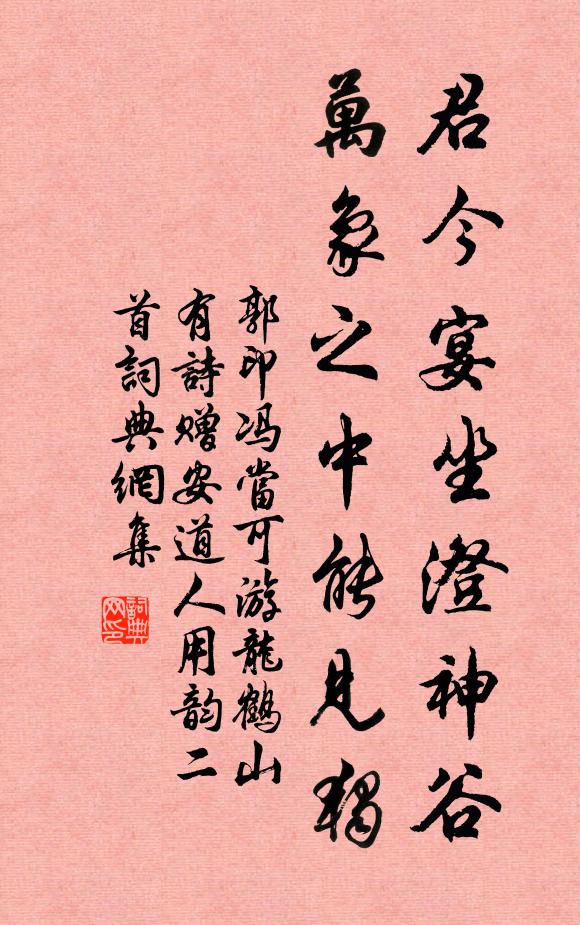 君今宴坐澄神谷
萬象之中能見獨
郭印馮當可游龍鶴山
有詩贈安道人用韵二
首詞典網集
詞典网印